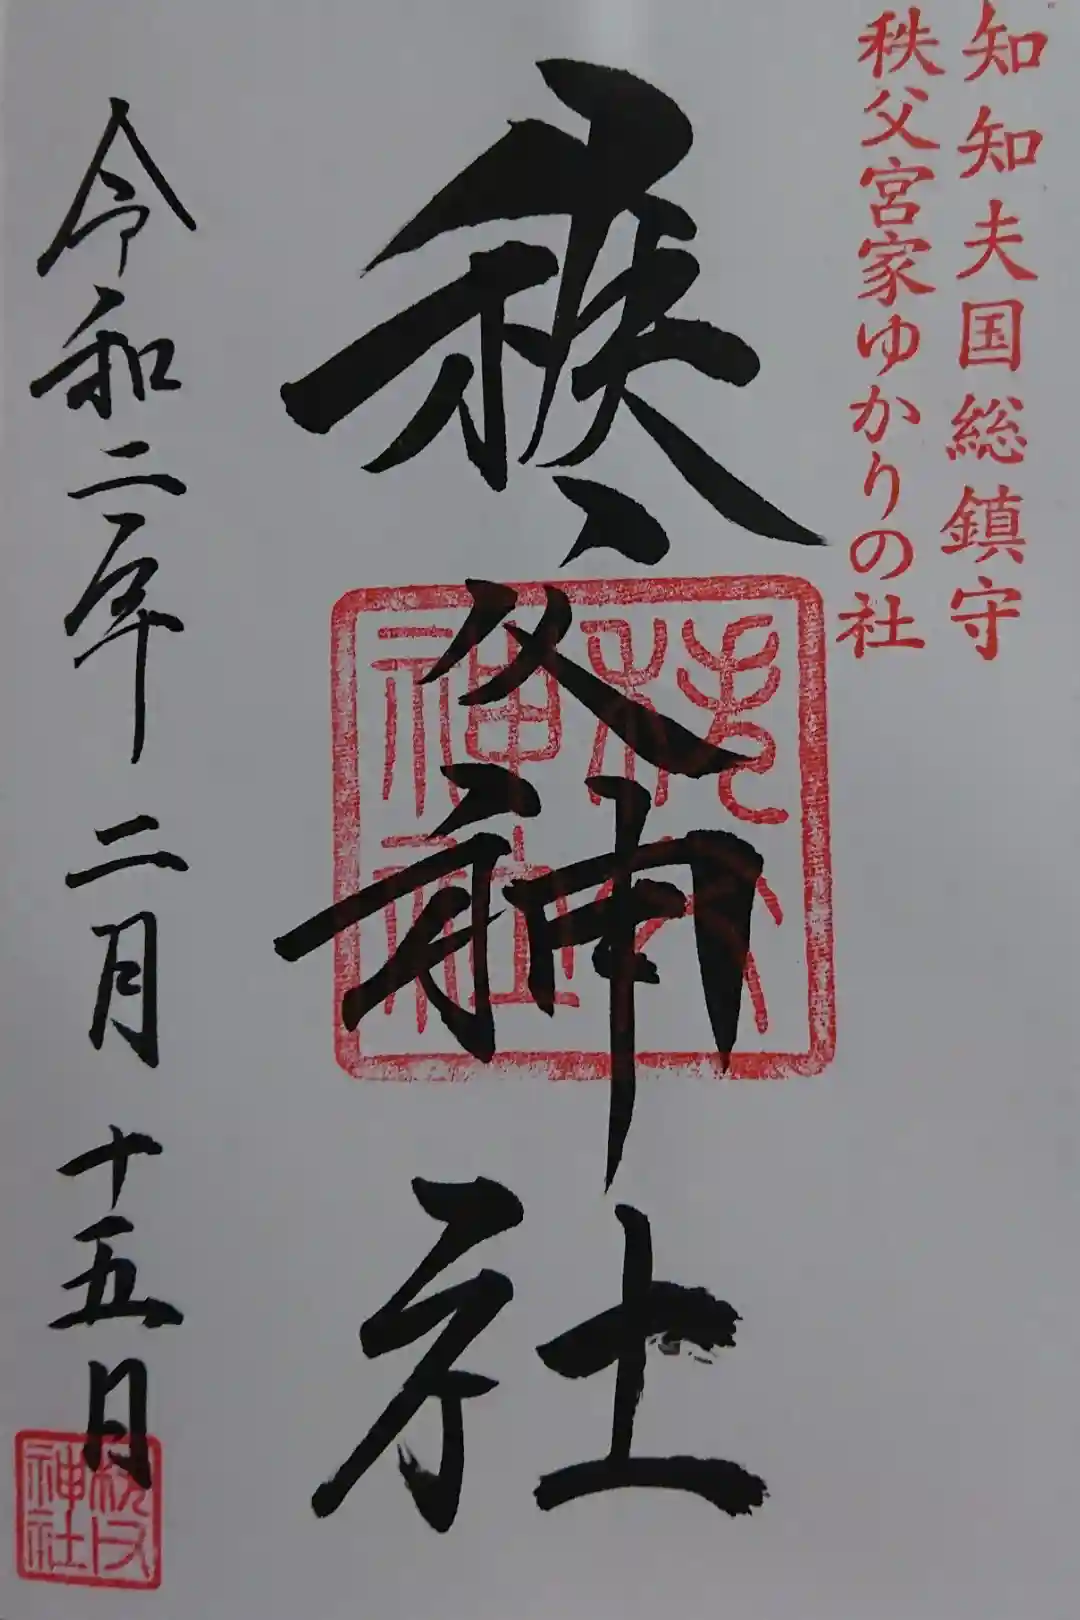 知知夫国総鎮守
秩父宮家ゆかりの社
秩父神社
秩父
神社
令和二年 二月 十五日
秩父
神社